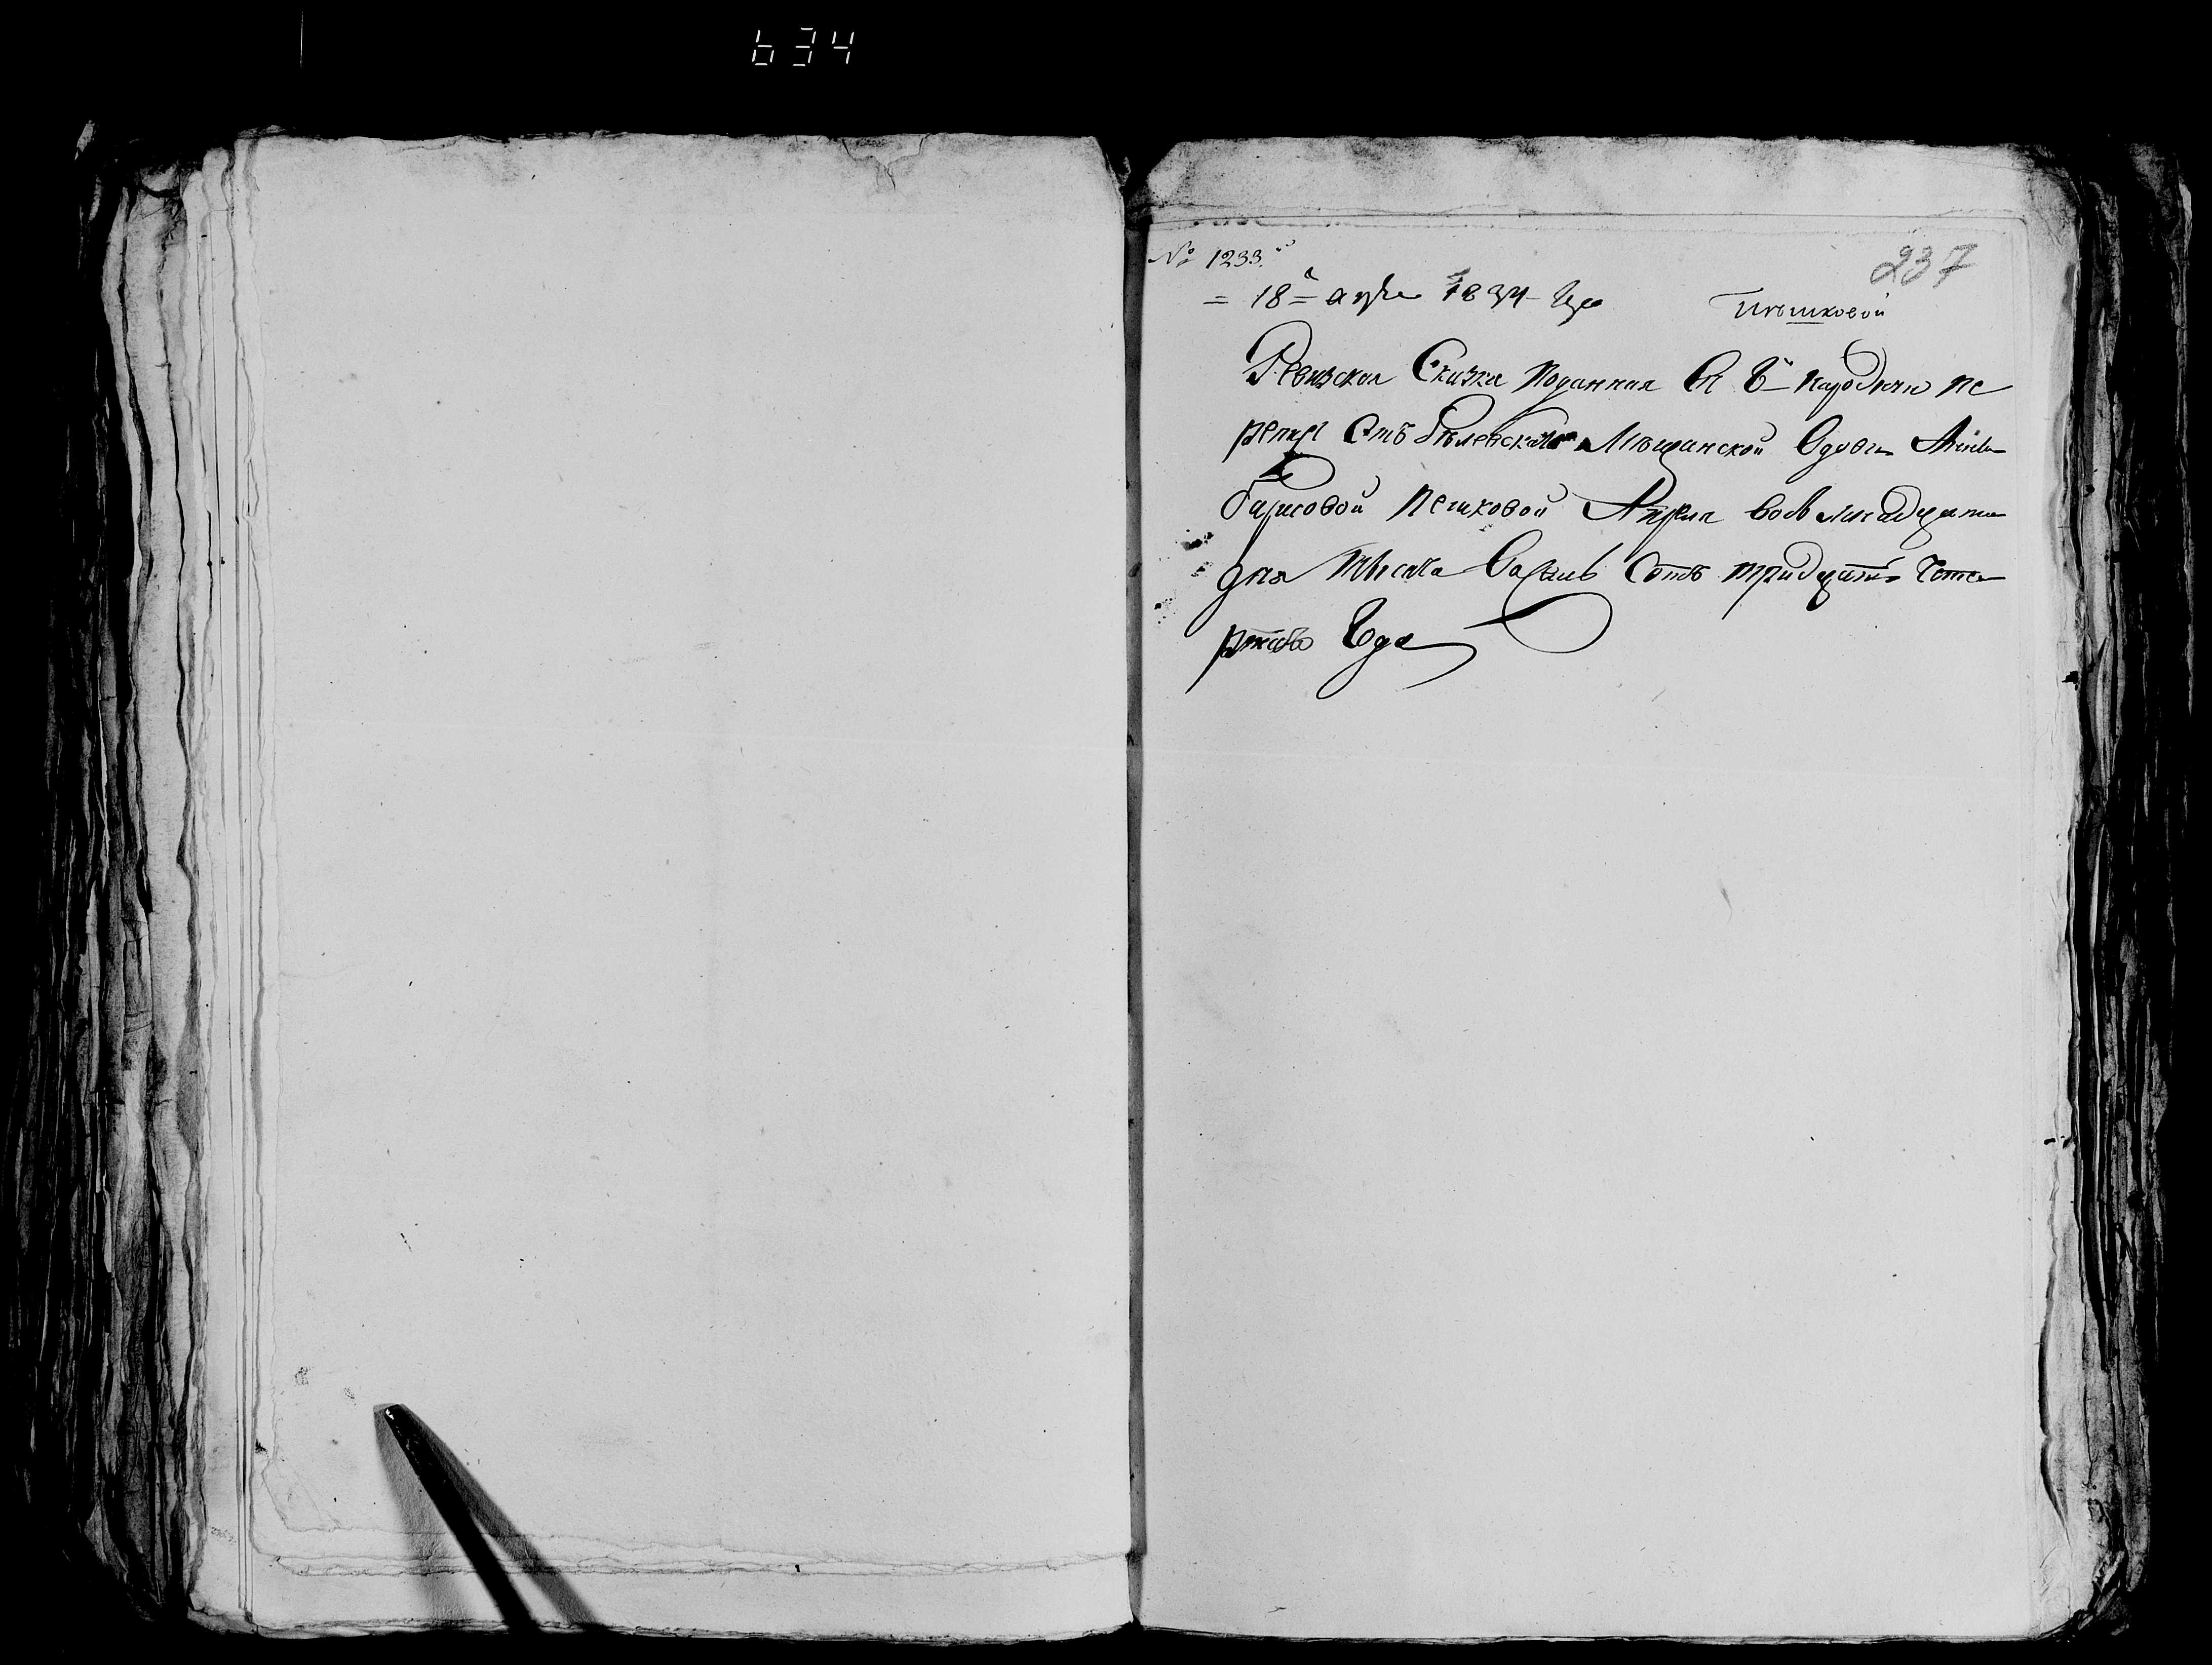 634
№ 1233.
237
= 18 = апре 1834 года
Пѣшковой
Ревизская Сказка Поданная Къ 8й Народной пе
репеси Отъ Бѣлевской Мѣщанской Вдовы
Барисовой Пешковой Апреля Восемнадцата
дня Тысяча Васемь Сотъ тридцать Четве
ртаго Года